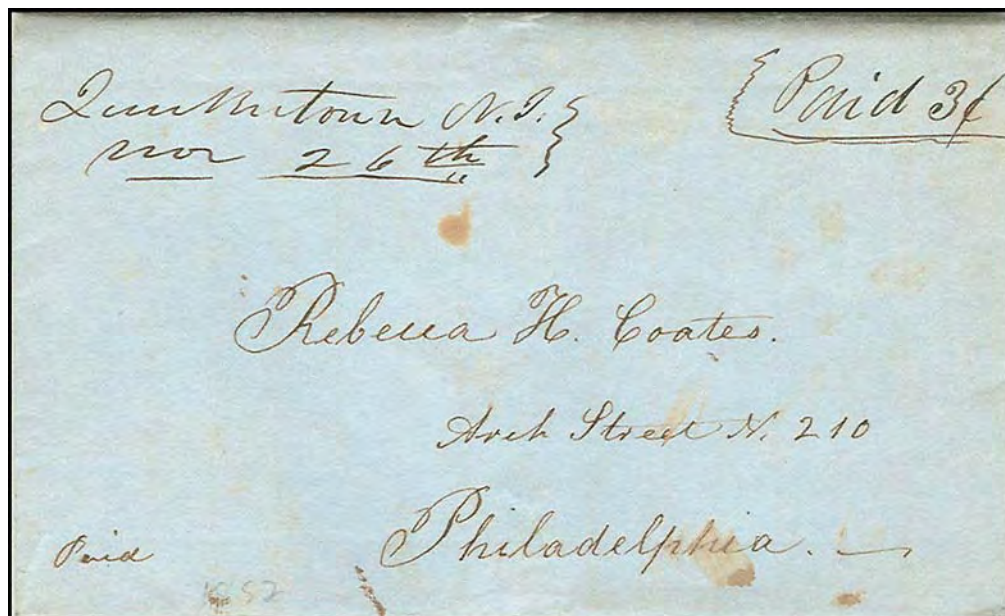 Quakertown N.J.
Nov 26th
Paid 3¢
Rebecca H. Coates.
Arch Street N. 210
Philadelphia.
Paid
1852